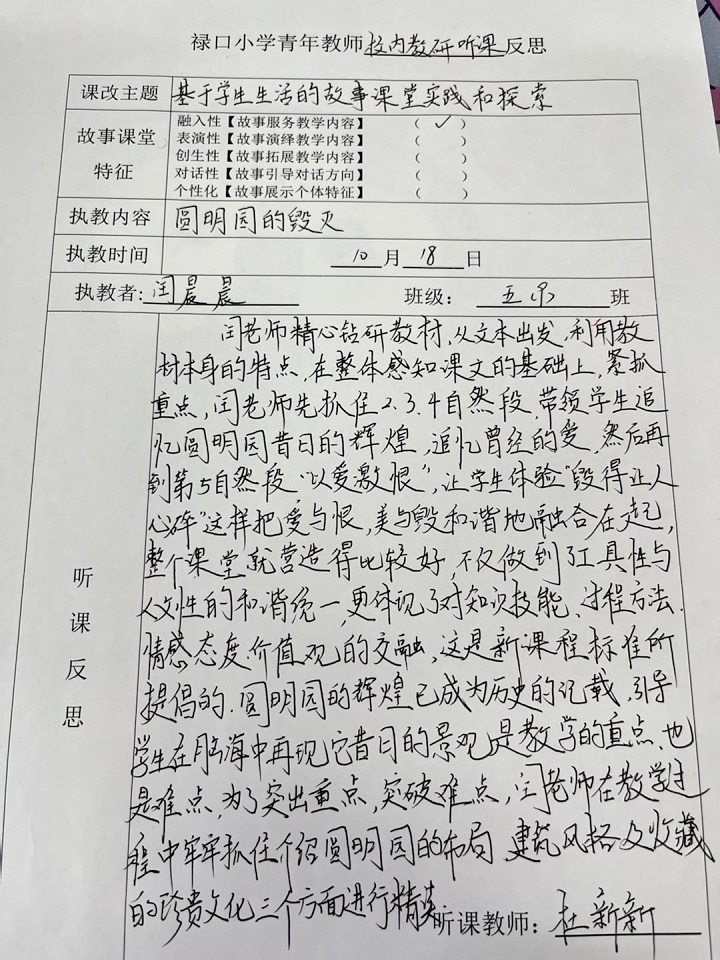 禄口小学青年教师校内教研听课反思
课改主题 基于学生生活的故事课堂实践和探索
故事课堂特征
融入性【故事服务教学内容】 （ ✓ ）
表演性【故事演绎教学内容】 （ ）
创生性【故事拓展教学内容】 （ ）
对话性【故事引导对话方向】 （ ）
个性化【故事展示个体特征】 （ ）
执教内容 圆明园的毁灭
执教时间 10月18日
执教者：闫晨晨 班级： 五 班
听课反思
闫老师精心钻研教材，从文本出发，利用教
材本身的特点，在整体感知课文的基础上，紧抓
重点，闫老师先抓住2.3.4自然段，带领学生追
忆圆明园昔日的辉煌，追忆曾经的爱，然后再
到第5自然段，“以爱激恨”，让学生体验“毁得让人
心碎”这样把爱与恨，美与毁和谐地融合在一起，
整个课堂就营造得比较好，不仅做到了工具性与
人文性的和谐统一，更体现了对知识技能、过程方法、
情感态度价值观的交融，这是新课程标准所
提倡的.圆明园的辉煌已成为历史的记载，引导
学生在脑海中再现它昔日的景观是教学的重点、也
是难点，为了突出重点，突破难点，闫老师在教学过
程中牢牢抓住介绍圆明园的布局 建筑风格及收藏
的珍贵文化三个方面进行精
听课教师：杜新新